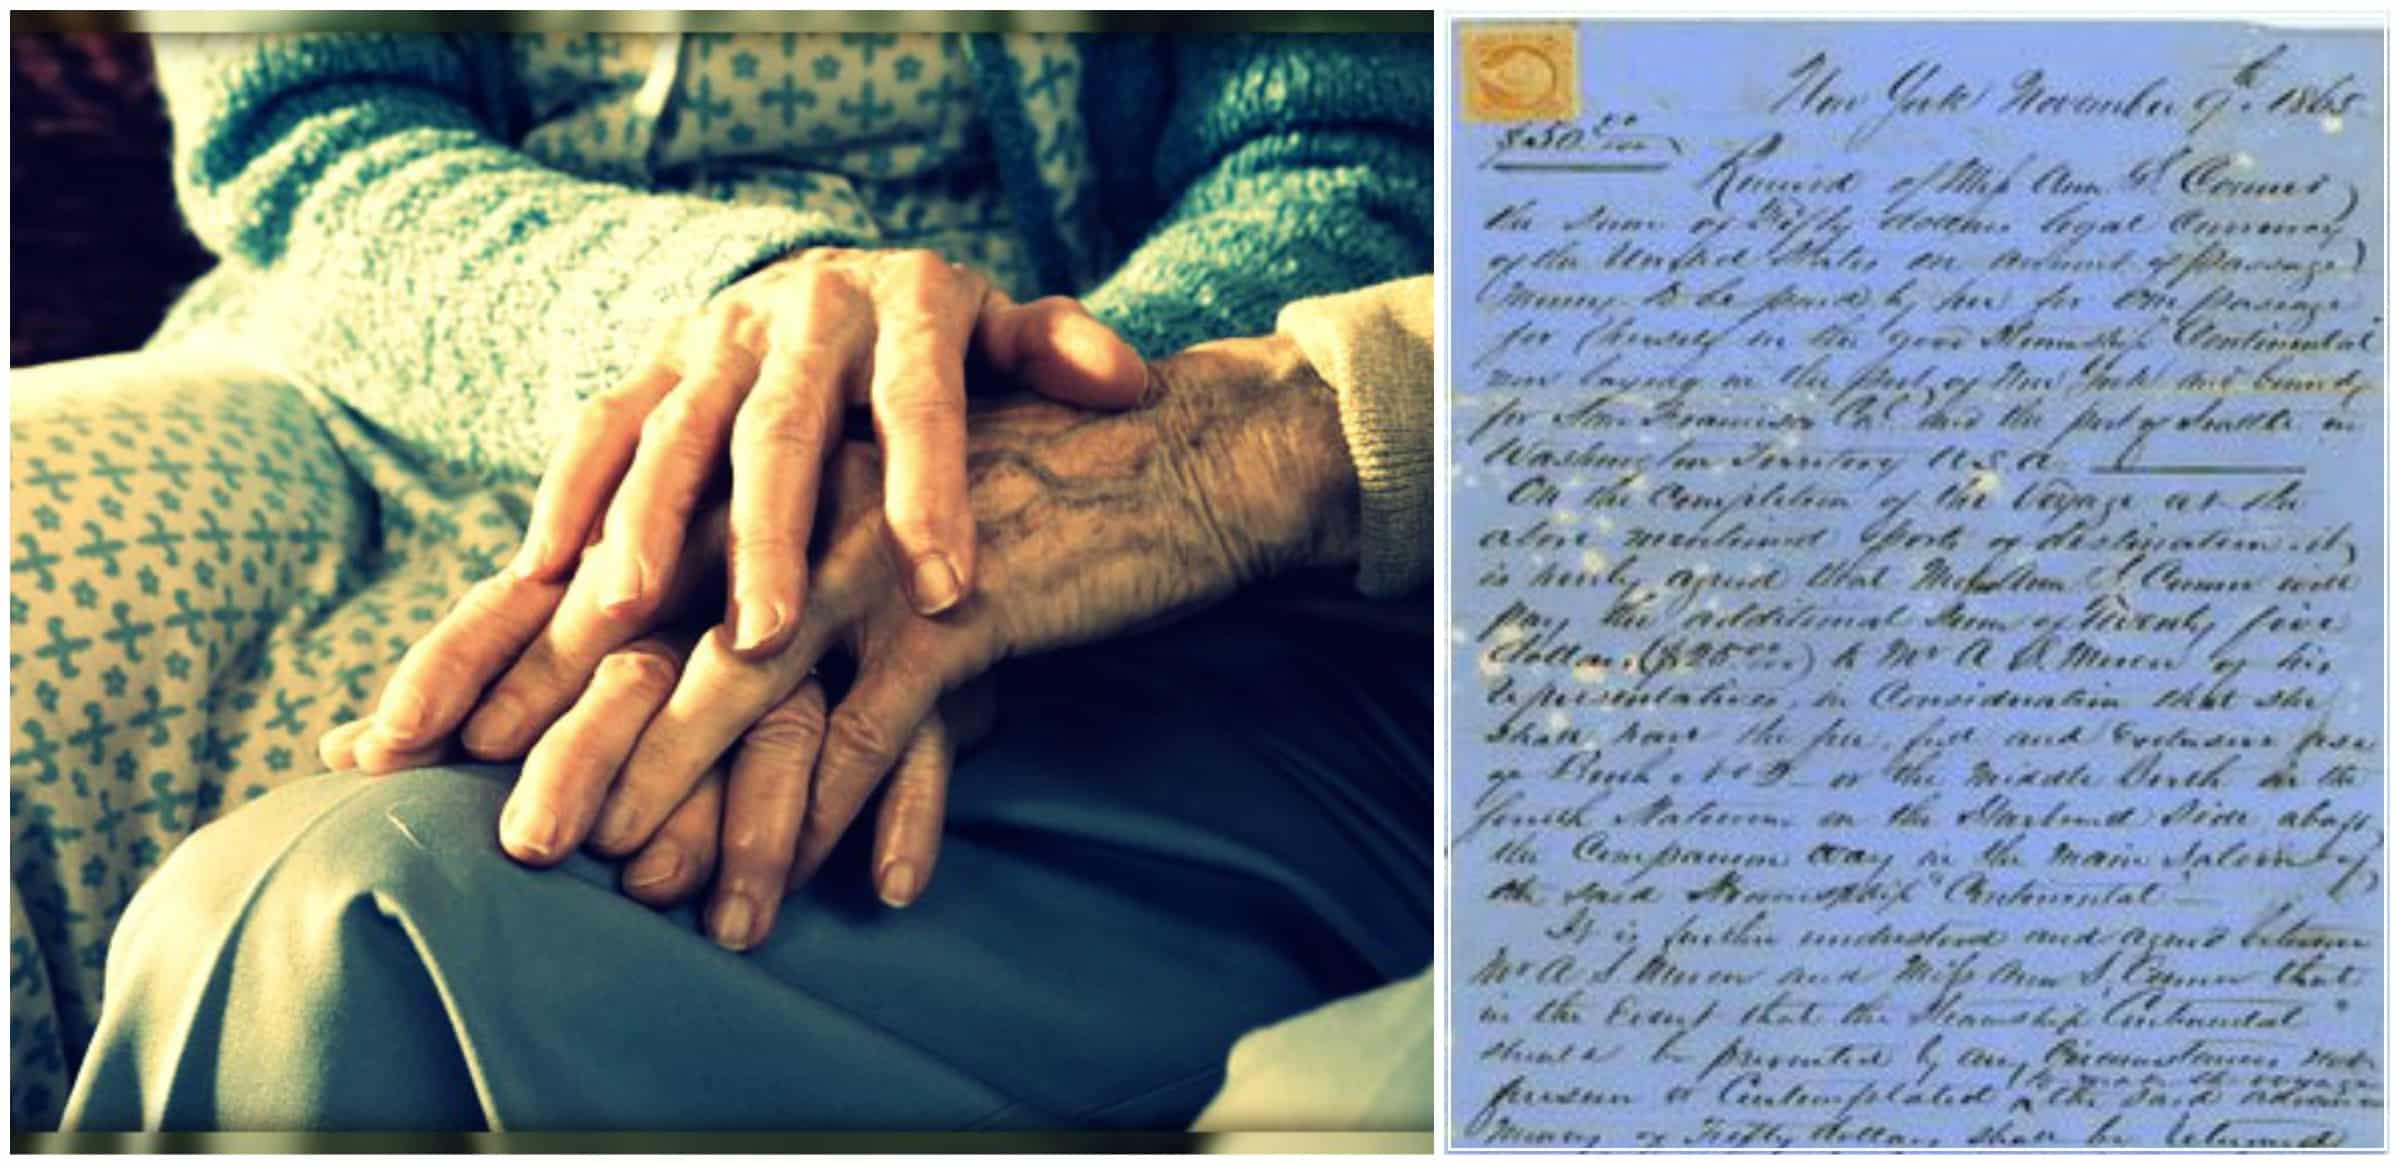 New York November 9th 1865
$50 00/100
Received of Miss Ann S. Conner
the sum of Fifty dollars legal Currency
of the United States on account of passage
Money to be paid by her for one passage
for herself in the good Steamship "Continental"
now laying in the Port of New York and bound
for San Francisco Cal and the port of Seattle in
Washington Territory U.S.A.
On the Completion of the Voyage at the
above mentioned ports of destination it
is hereby agreed that Miss Ann S. Conner will
pay the additional Sum of Twenty five
Dollars ($25 00/100) to Mr A S Mercer or his
representatives, in Consideration that she
shall have the free, full and Exclusive use
of Berth No or the Middle Berth in the
fourth Stateroom on the Starboard side abaft
the Companion way in the Main Saloon of
the said Steamship "Continental"
It is further understood and agreed between
Mr A S Mercer and Miss Ann S. Conner that
in the Event that the Steamship "Continental"
should be prevented by any Circumstances not
foreseen or Contemplated to make the voyage the said advance
Money of Fifty dollars shall be returned